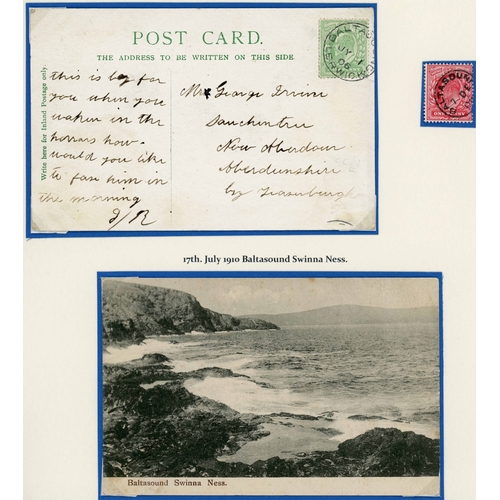 POST CARD.
THE ADDRESS TO BE WRITTEN ON THIS SIDE.
Write here for Inland Postage only.
this is by for
you when you
waken in the
horrors how
would you like
to face him in
the morning
J/R
Mr George Irvine
New Aberdour
Aberdeenshire
by
BALTASOUND
LERWICK
JY 1
06
BALTASOUND
17th. July 1910 Baltasound Swinna Ness.
Baltasound Swinna Ness.